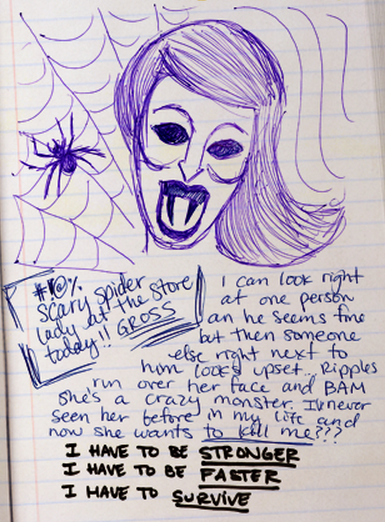 #!@%
scary spider
lady at the store
today!! GROSS
I can look right
at one person
an he seems fine
but then someone
else right next to
him looks upset... Ripples
run over her face and BAM
she's a crazy monster. I've never
seen her before in my life and
now she wants to kill me???
I HAVE TO BE STRONGER
I HAVE TO BE FASTER
I HAVE TO SURVIVE